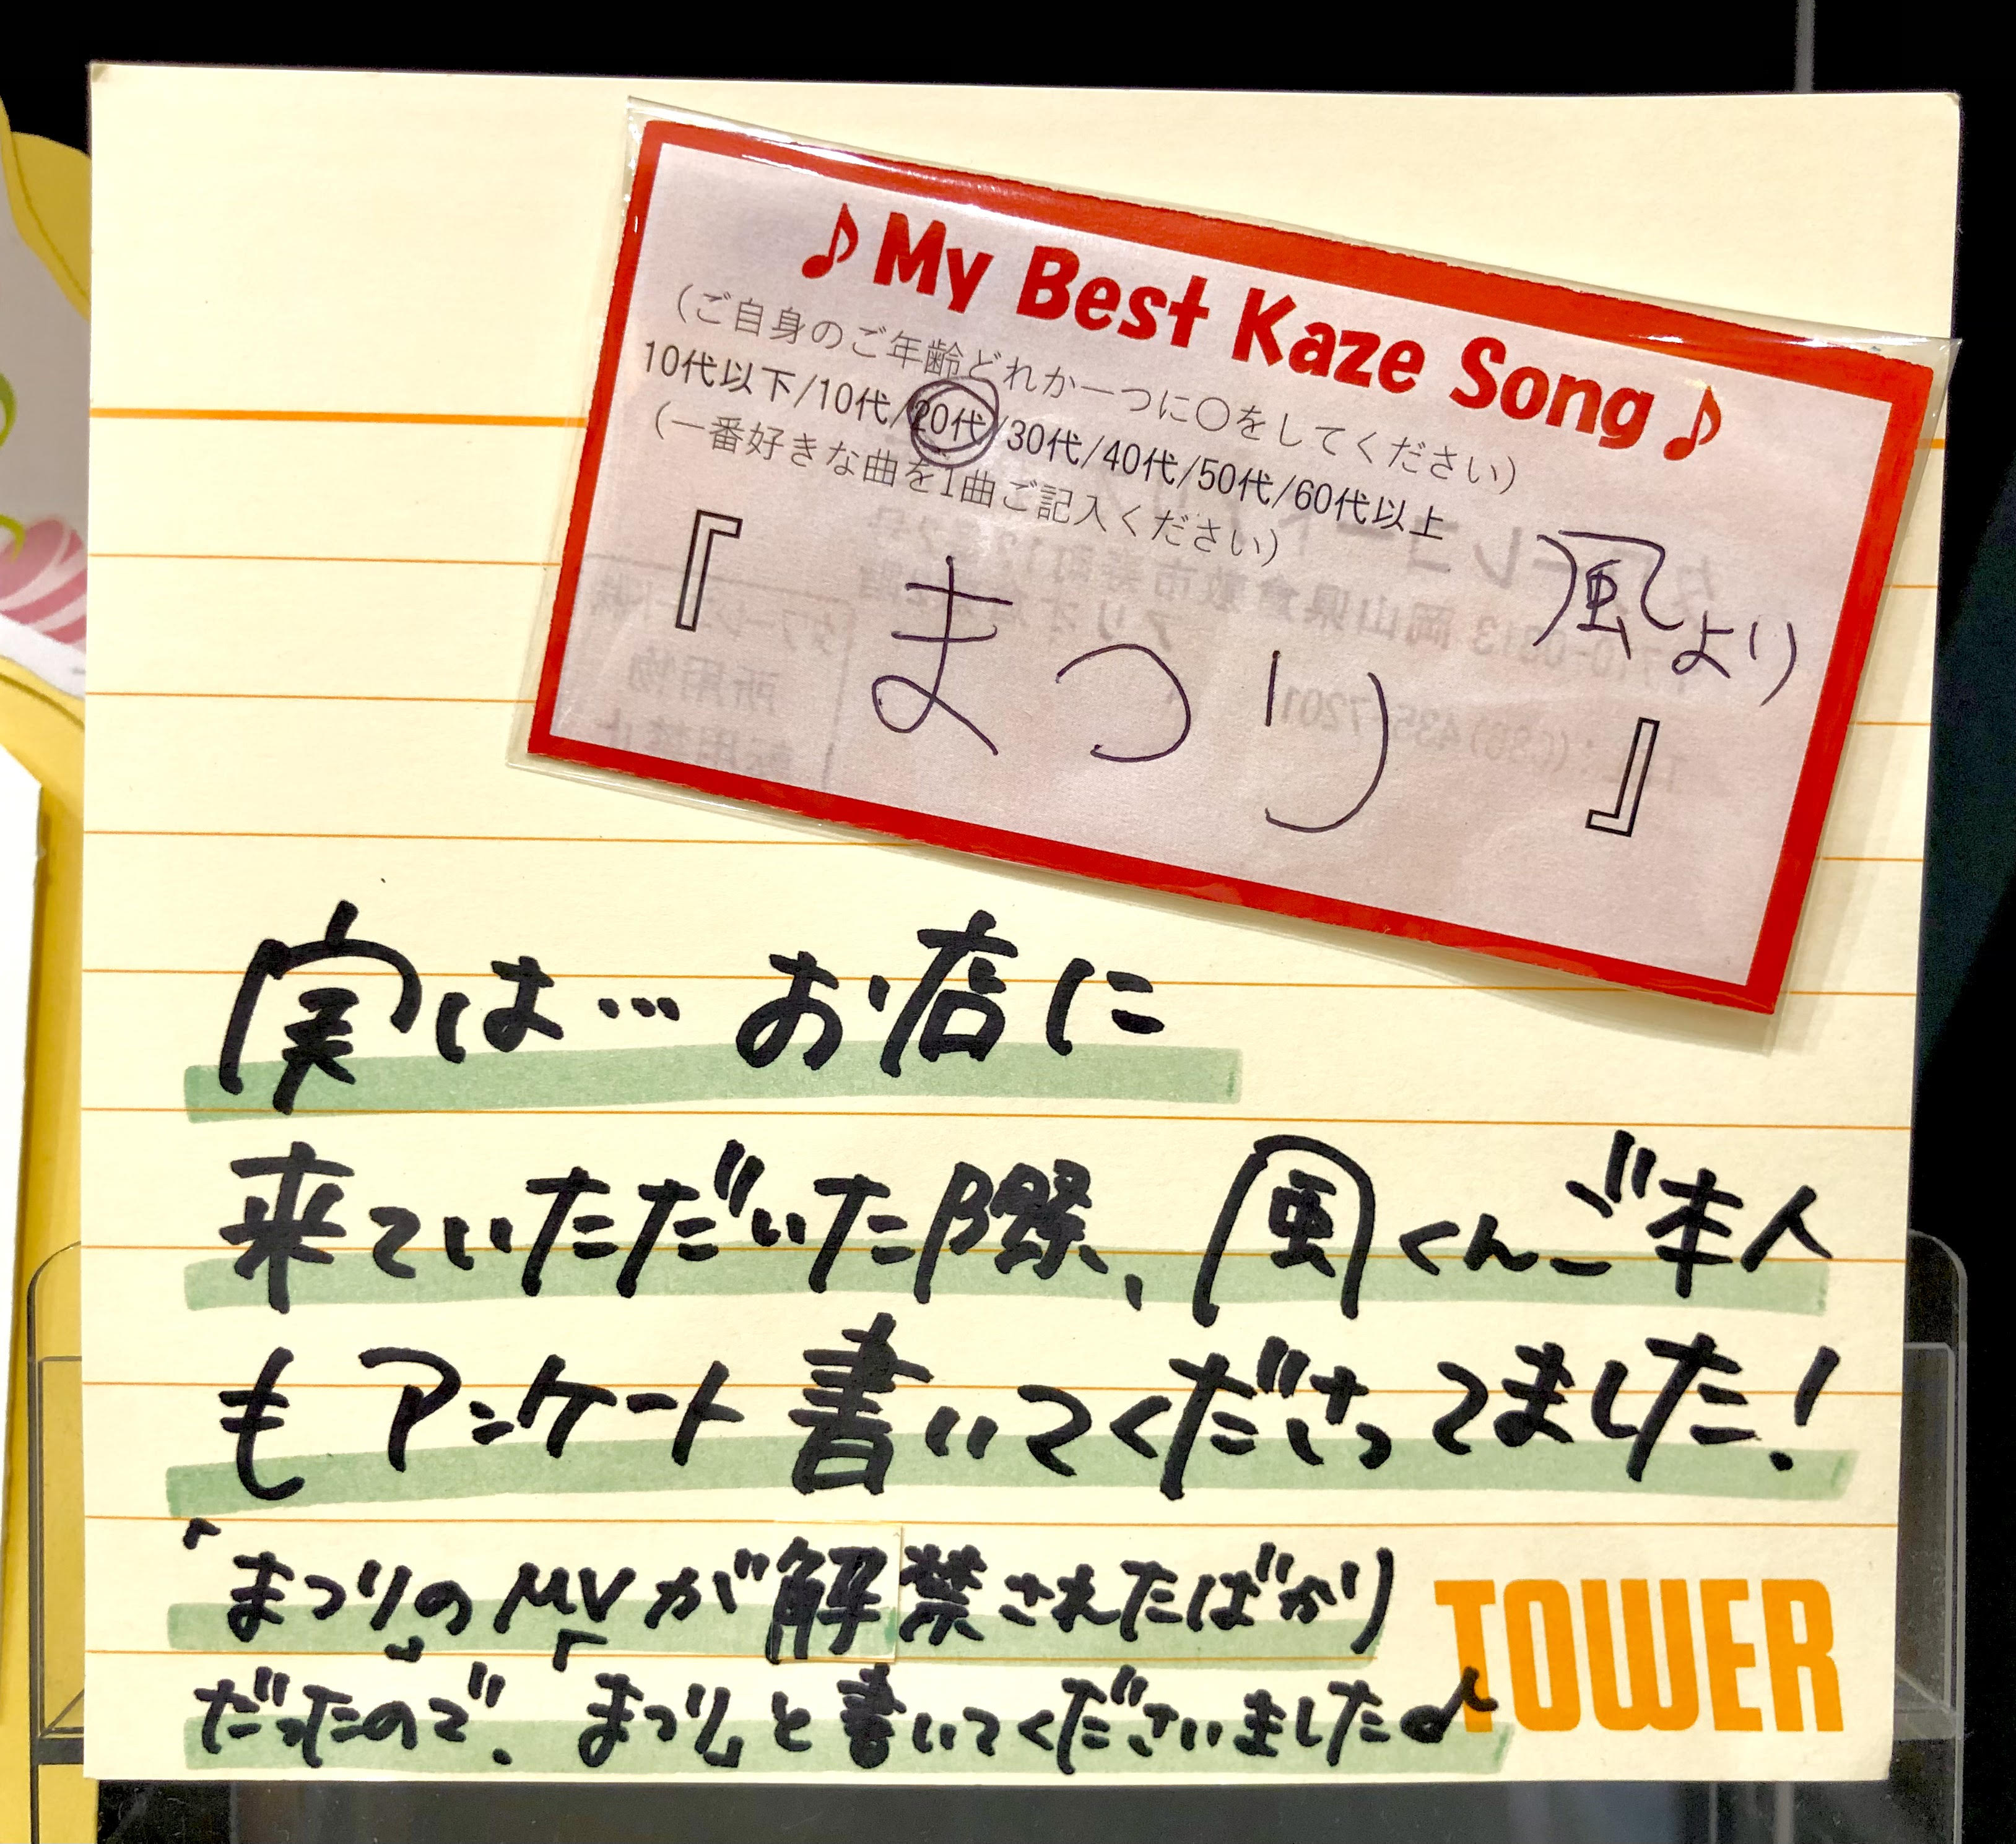 ♪My Best Kaze Song♪
（ご自身のご年齢どれか一つに○をしてください）
10代以下/10代/20代/30代/40代/50代/60代以上
（一番好きな曲を1曲ご記入ください）
『まつり 風より』
実は…お店に
来ていただいた際、風くんご本人
もアンケート書いてくださってました!
「まつり」のMVが解禁されたばかり
だったので、「まつり」と書いてくださいました♪
TOWER